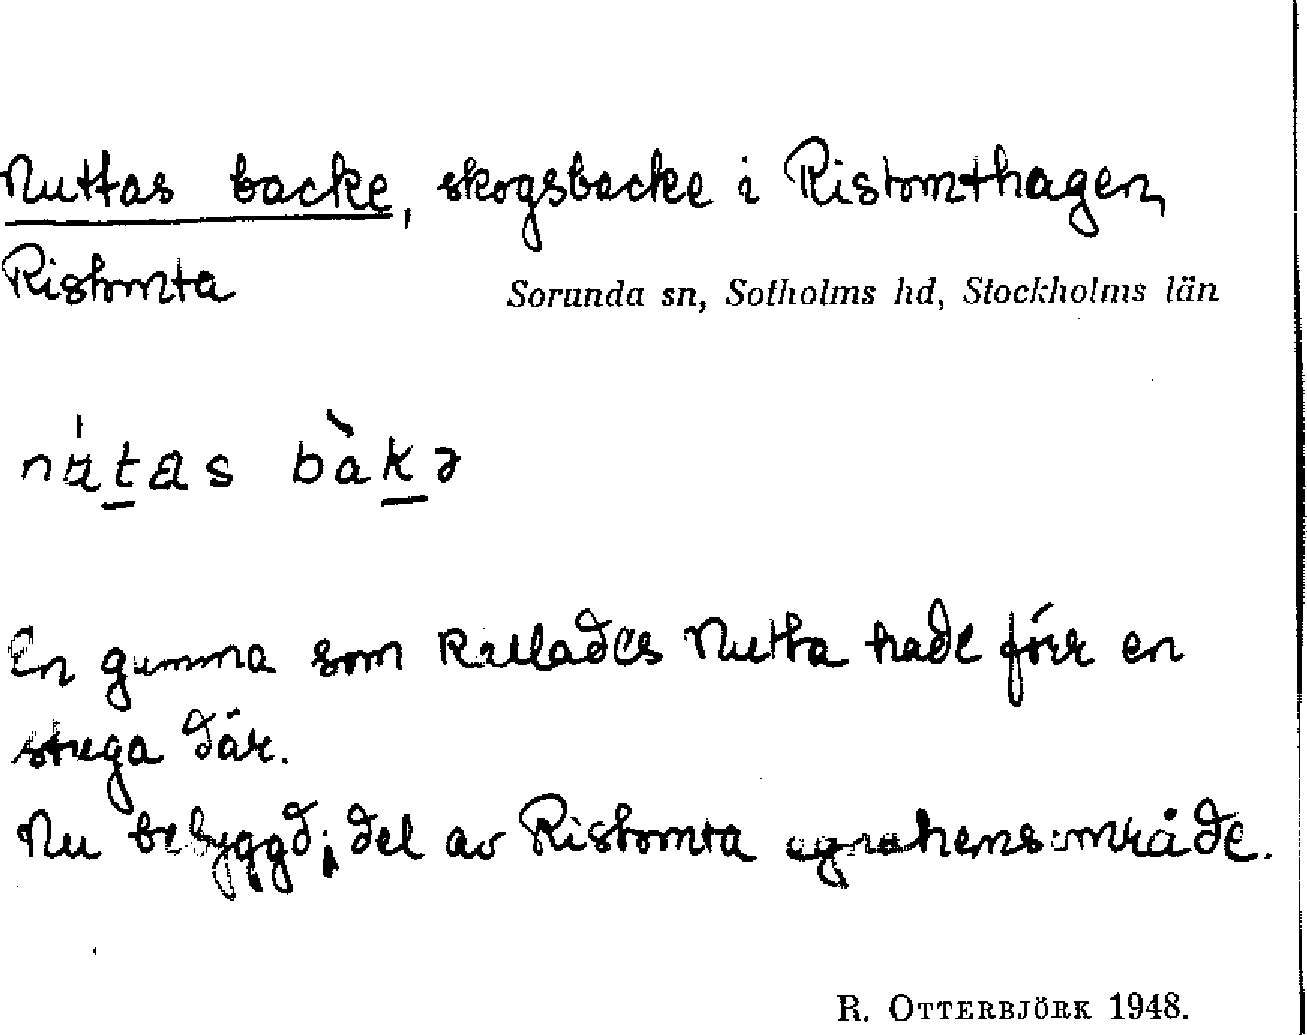 Nuttas backe, skogsbacke i Ristomthagen,
Ristomta
Sorunda sn, Sotholms hd, Stockholms län
nʉ́tas bàkə
En gumma som kallades Nutta hade förr en
stuga där.
Nu bebyggd; del av Ristomta egnahemsområde.
R. OTTERBJÖRK 1948.